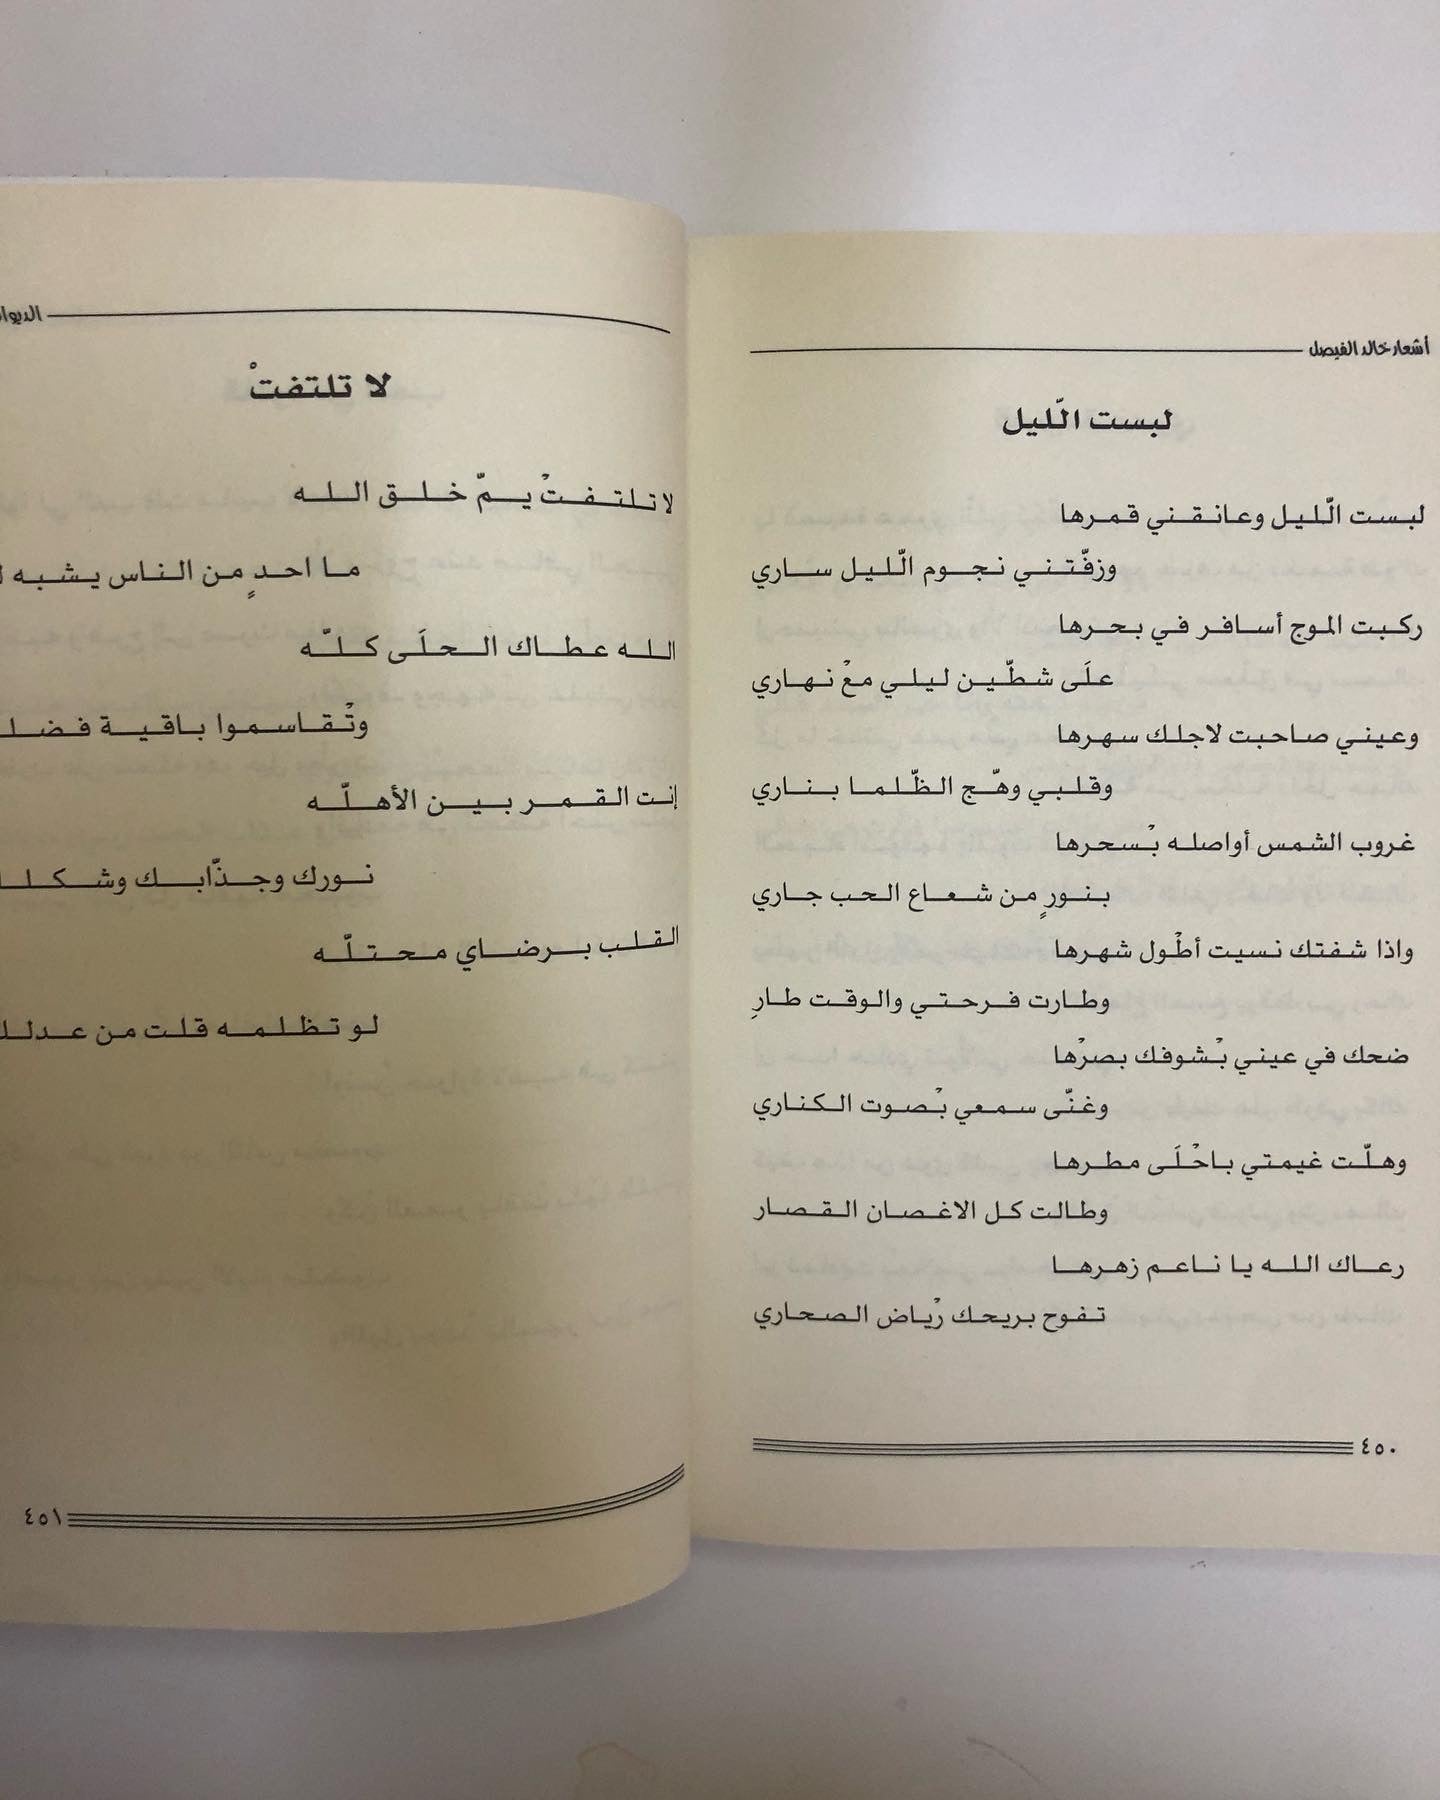 أشعار خالد الفيصل
لبست الّليل
لبست الّليل وعانقني قمرها
وزفّتني نجوم الّليل ساري
ركبت الموج أسافر في بحرها
علَى شطّين ليلي معْ نهاري
وعيني صاحبت لاجلك سهرها
وقلبي وهّج الظّلما بناري
غروب الشمس أواصله بْسحرها
بنورٍ من شعاع الحب جاري
واذا شفتك نسيت أطْول شهرها
وطارت فرحتي والوقت طارِ
ضحك في عيني بْشوفك بصرْها
وغنّى سمعي بْصوت الكناري
وهلّت غيمتي باحْلَى مطرها
وطالت كل الاغصان القصار
رعاك الله يا ناعم زهرها
تفوح بريحك رْياض الصحاري
٤٥٠
لا تلتفتْ
لا تلتفتْ يمّ خلق الله
ما احدٍ من الناس يشبه
الله عطاك الحلَى كلّه
وتْقاسموا باقية
إنت القمر بين الأهلّه
نورك وجذّابك
القلب برضاي محتلّه
لو تظلمه قلت من
٤٥١